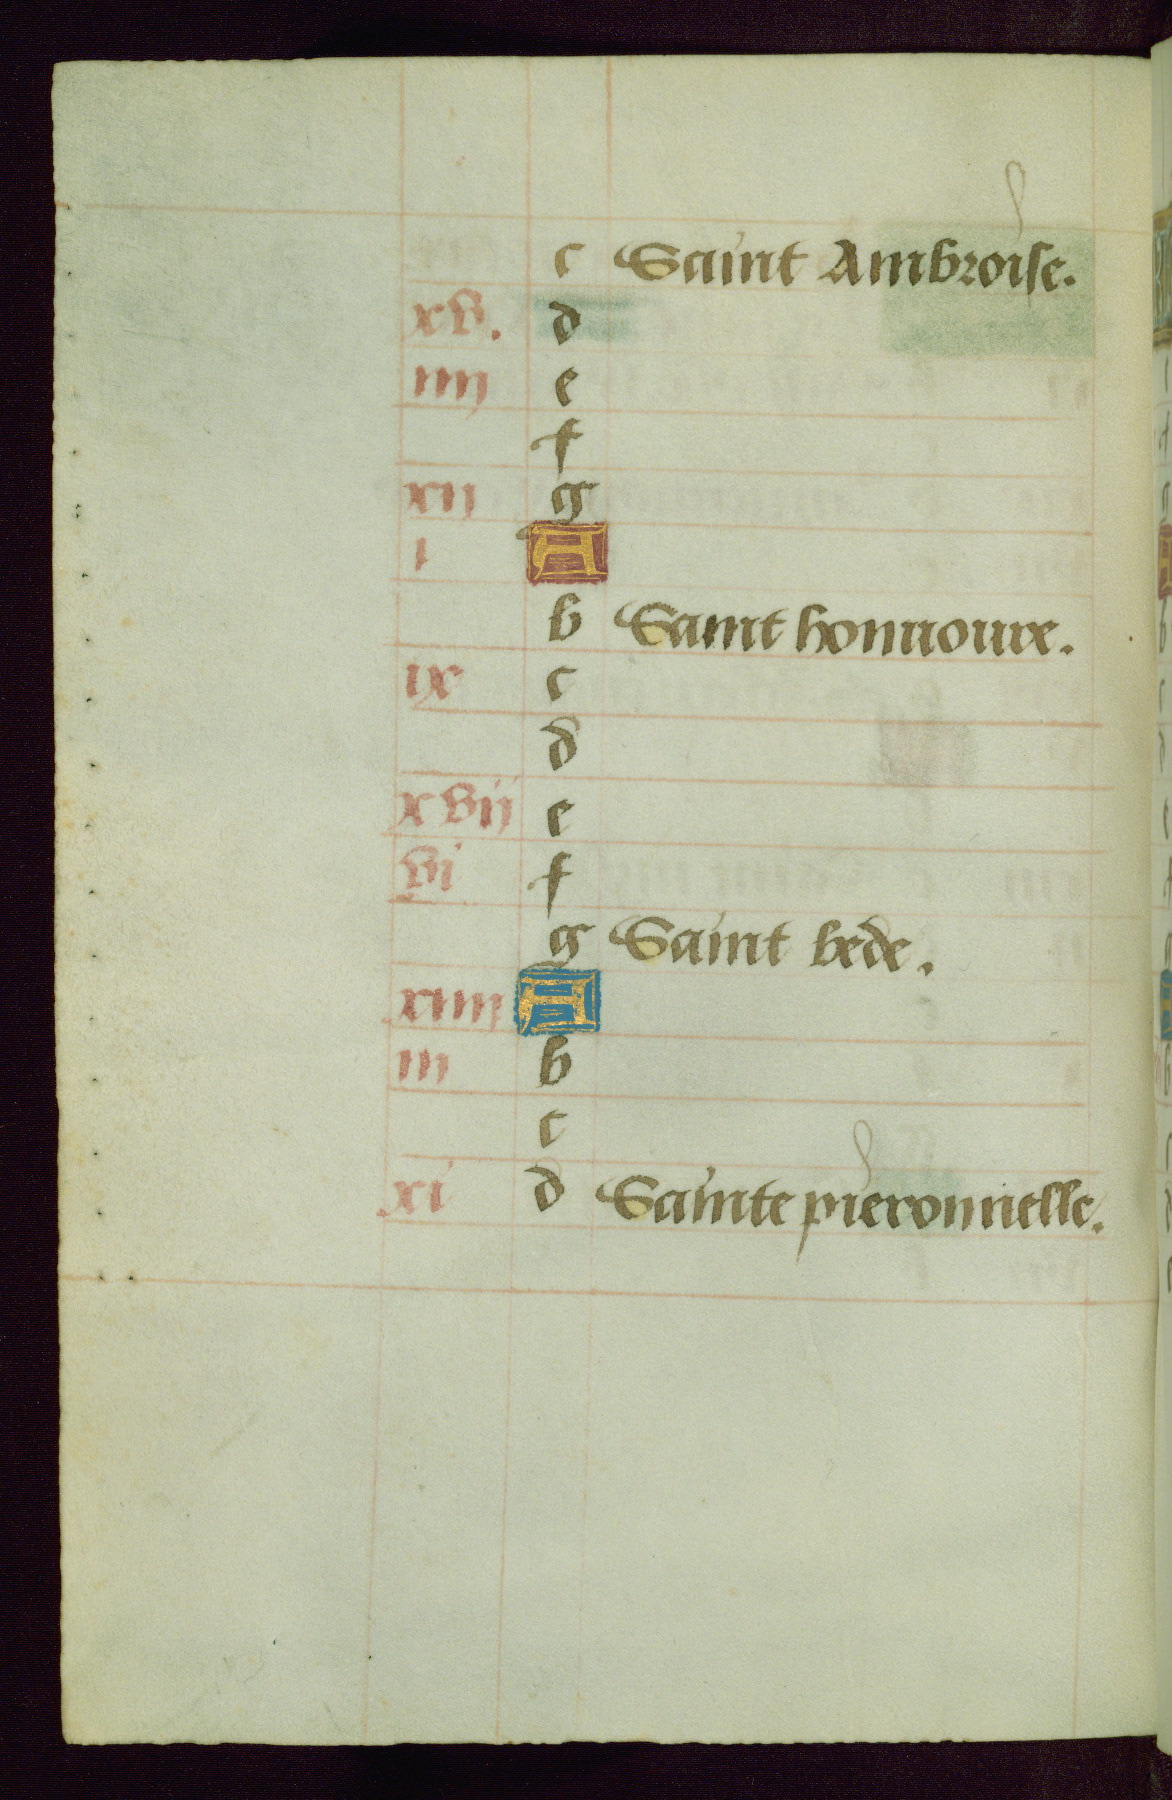 c Saint Ambroise.
xv. d
iiij e
f
xij g
i A
b Saint honnoure.
ix c
d
xvij e
vi f
g Saint bede.
xiiij A
iij b
c
xi d Sainte pieronnelle.